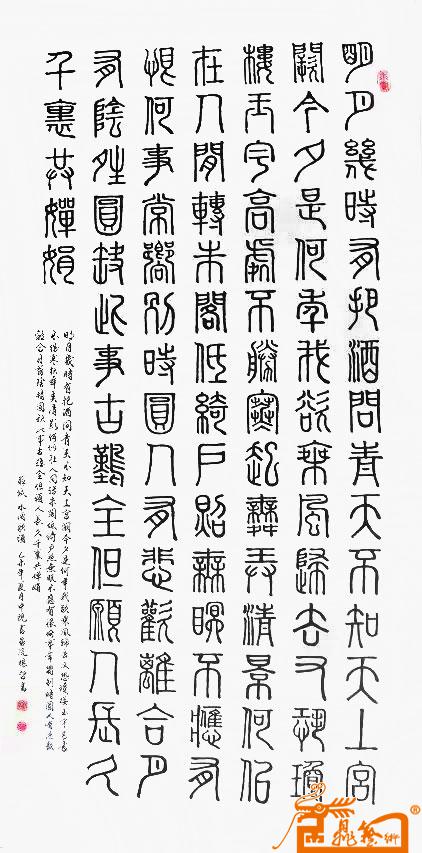 明月幾時有把酒問青天不知天上宮
闕今夕是何年我欲乘風歸去又恐瓊
樓玉宇高處不勝寒起舞弄清景何似
在人間轉朱閣低綺戶照無眠不應有
恨何事常嚮別時圓人有悲歡離合月
有陰晴圓缺此事古難全但願人長久
千裏共嬋娟
明月幾時有把酒問青天不知天上宮闕今夕是何年我欲乘風歸去又恐瓊樓玉宇高處
不勝寒起舞弄清影何似在人間轉朱閣低綺戶照無眠不應有恨何事常嚮別時圓人有悲歡
離合月有陰晴圓缺此事古難全但願人長久千裏共嬋娟
蘇軾 水調歌頭 乙未年夏月中浣書